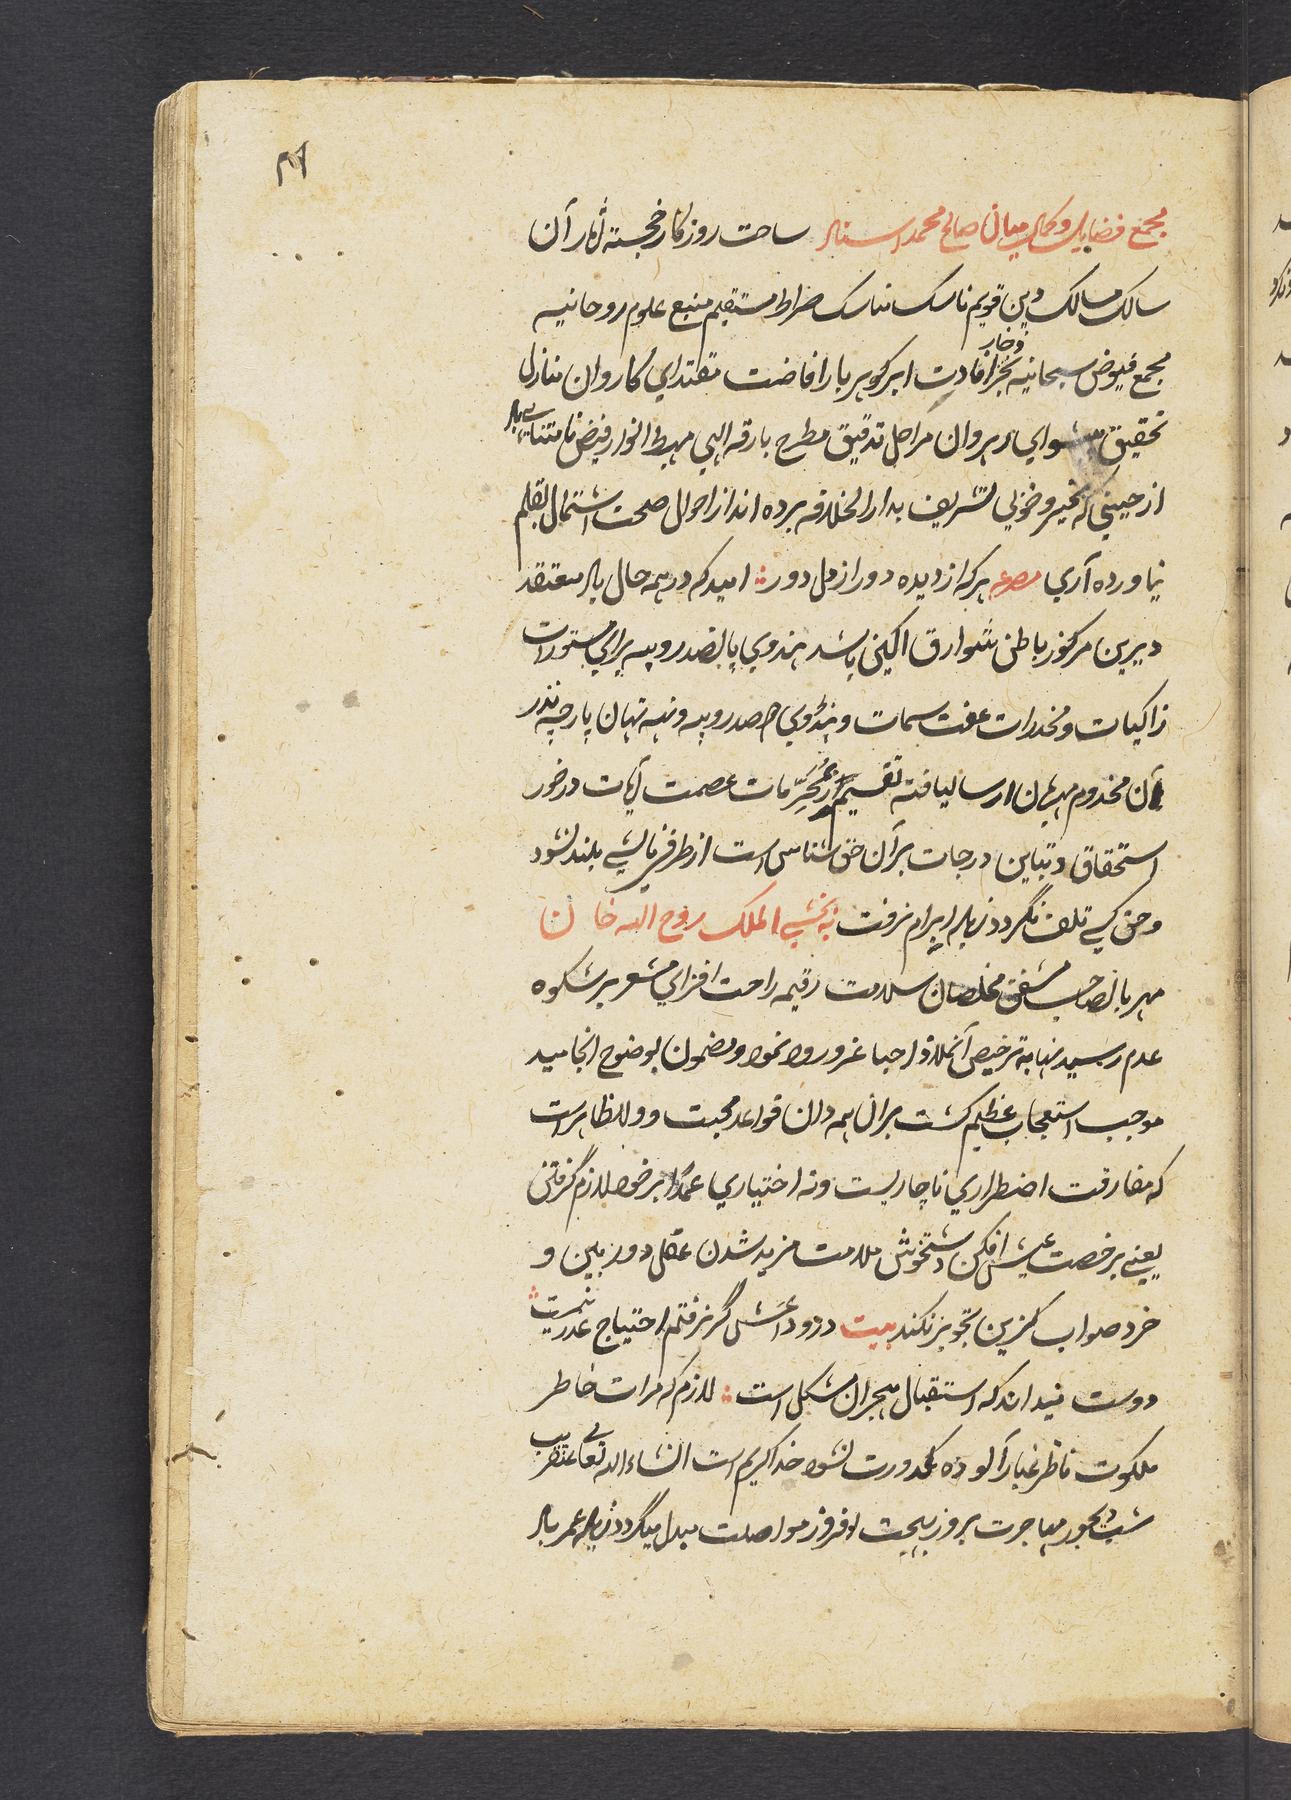 مجمع فضایل و کمال میان صالح محمد استاد ساحت روزگار خجسته آثار آن
سالک مسالک دین قویم ناسک مناسک صراط مستقیم منبع علوم روحانیه
مجمع فیوض سبحانیه بحر ذخار افادت ابر گوهر بار افاضت مقتدای کاروان منازل
تحقیق پیشوای رهروان مراحل تدقیق مطرح بارقه الهی مهبط انوار فیض نامتناهی باد
از حینی که بخیر و خوبی تشریف بدار الخلافه برده اند از احوال صحت اشتمال بقلم
نیاورده آری مصرعه هر که از دیده دور از دل دور امید که در همه حال یاد معتقد
دیرین مرکوز باطن شوارق آگین باشد هندوی پانصد روپیه برای مستورات
زاکیات و مخدرات عفت سمات و هندوی صد روپیه و نیه تهان پارچه نذر
آن مخدوم مهربان ارسال یافته تقسیم زر بمحرمات عصمت آیات در خور
استحقاق و تباین درجات بر آن حق شناس است از طرفی نالشی بلند نشود
و حق کسی تلف نگردد زیاده ابرام نرفت به بخشی الملک روح الله خان
مهربان صاحب مشفق مخلصان سلامت رقیمه راحت افزای مشعر بر شکوه
عدم رسید نهایة ترخیص آنملاذ احبا غرور ود نمود و مضمون بوضوح انجامید
موجب استعجاب عظیم گشت بر آن همه دان قواعد محبت و ولا ظاهر است
که مفارقت اضطراری ناچاریست و نه اختیاری عمدا بر خود لازم گرفتنی
یعنی برخصت عیش افکن دستخوش ملامت مزید شدن عقل دوربین و
خرد صواب گزین تجویز نکند بیت در وداعش گر نرفتم احتیاج عذر نیست
دوست میداند که استقبال هجران مشکل است لازم که مرات خاطر
ملکوت ناظر غبار آلوده کدورت نشود خدا کریم است انشاء الله تعالی عنقریب
شب دیجور مهاجرت بروز بهجت افروز مواصلت مبدل میگردد زیاده عمر باد